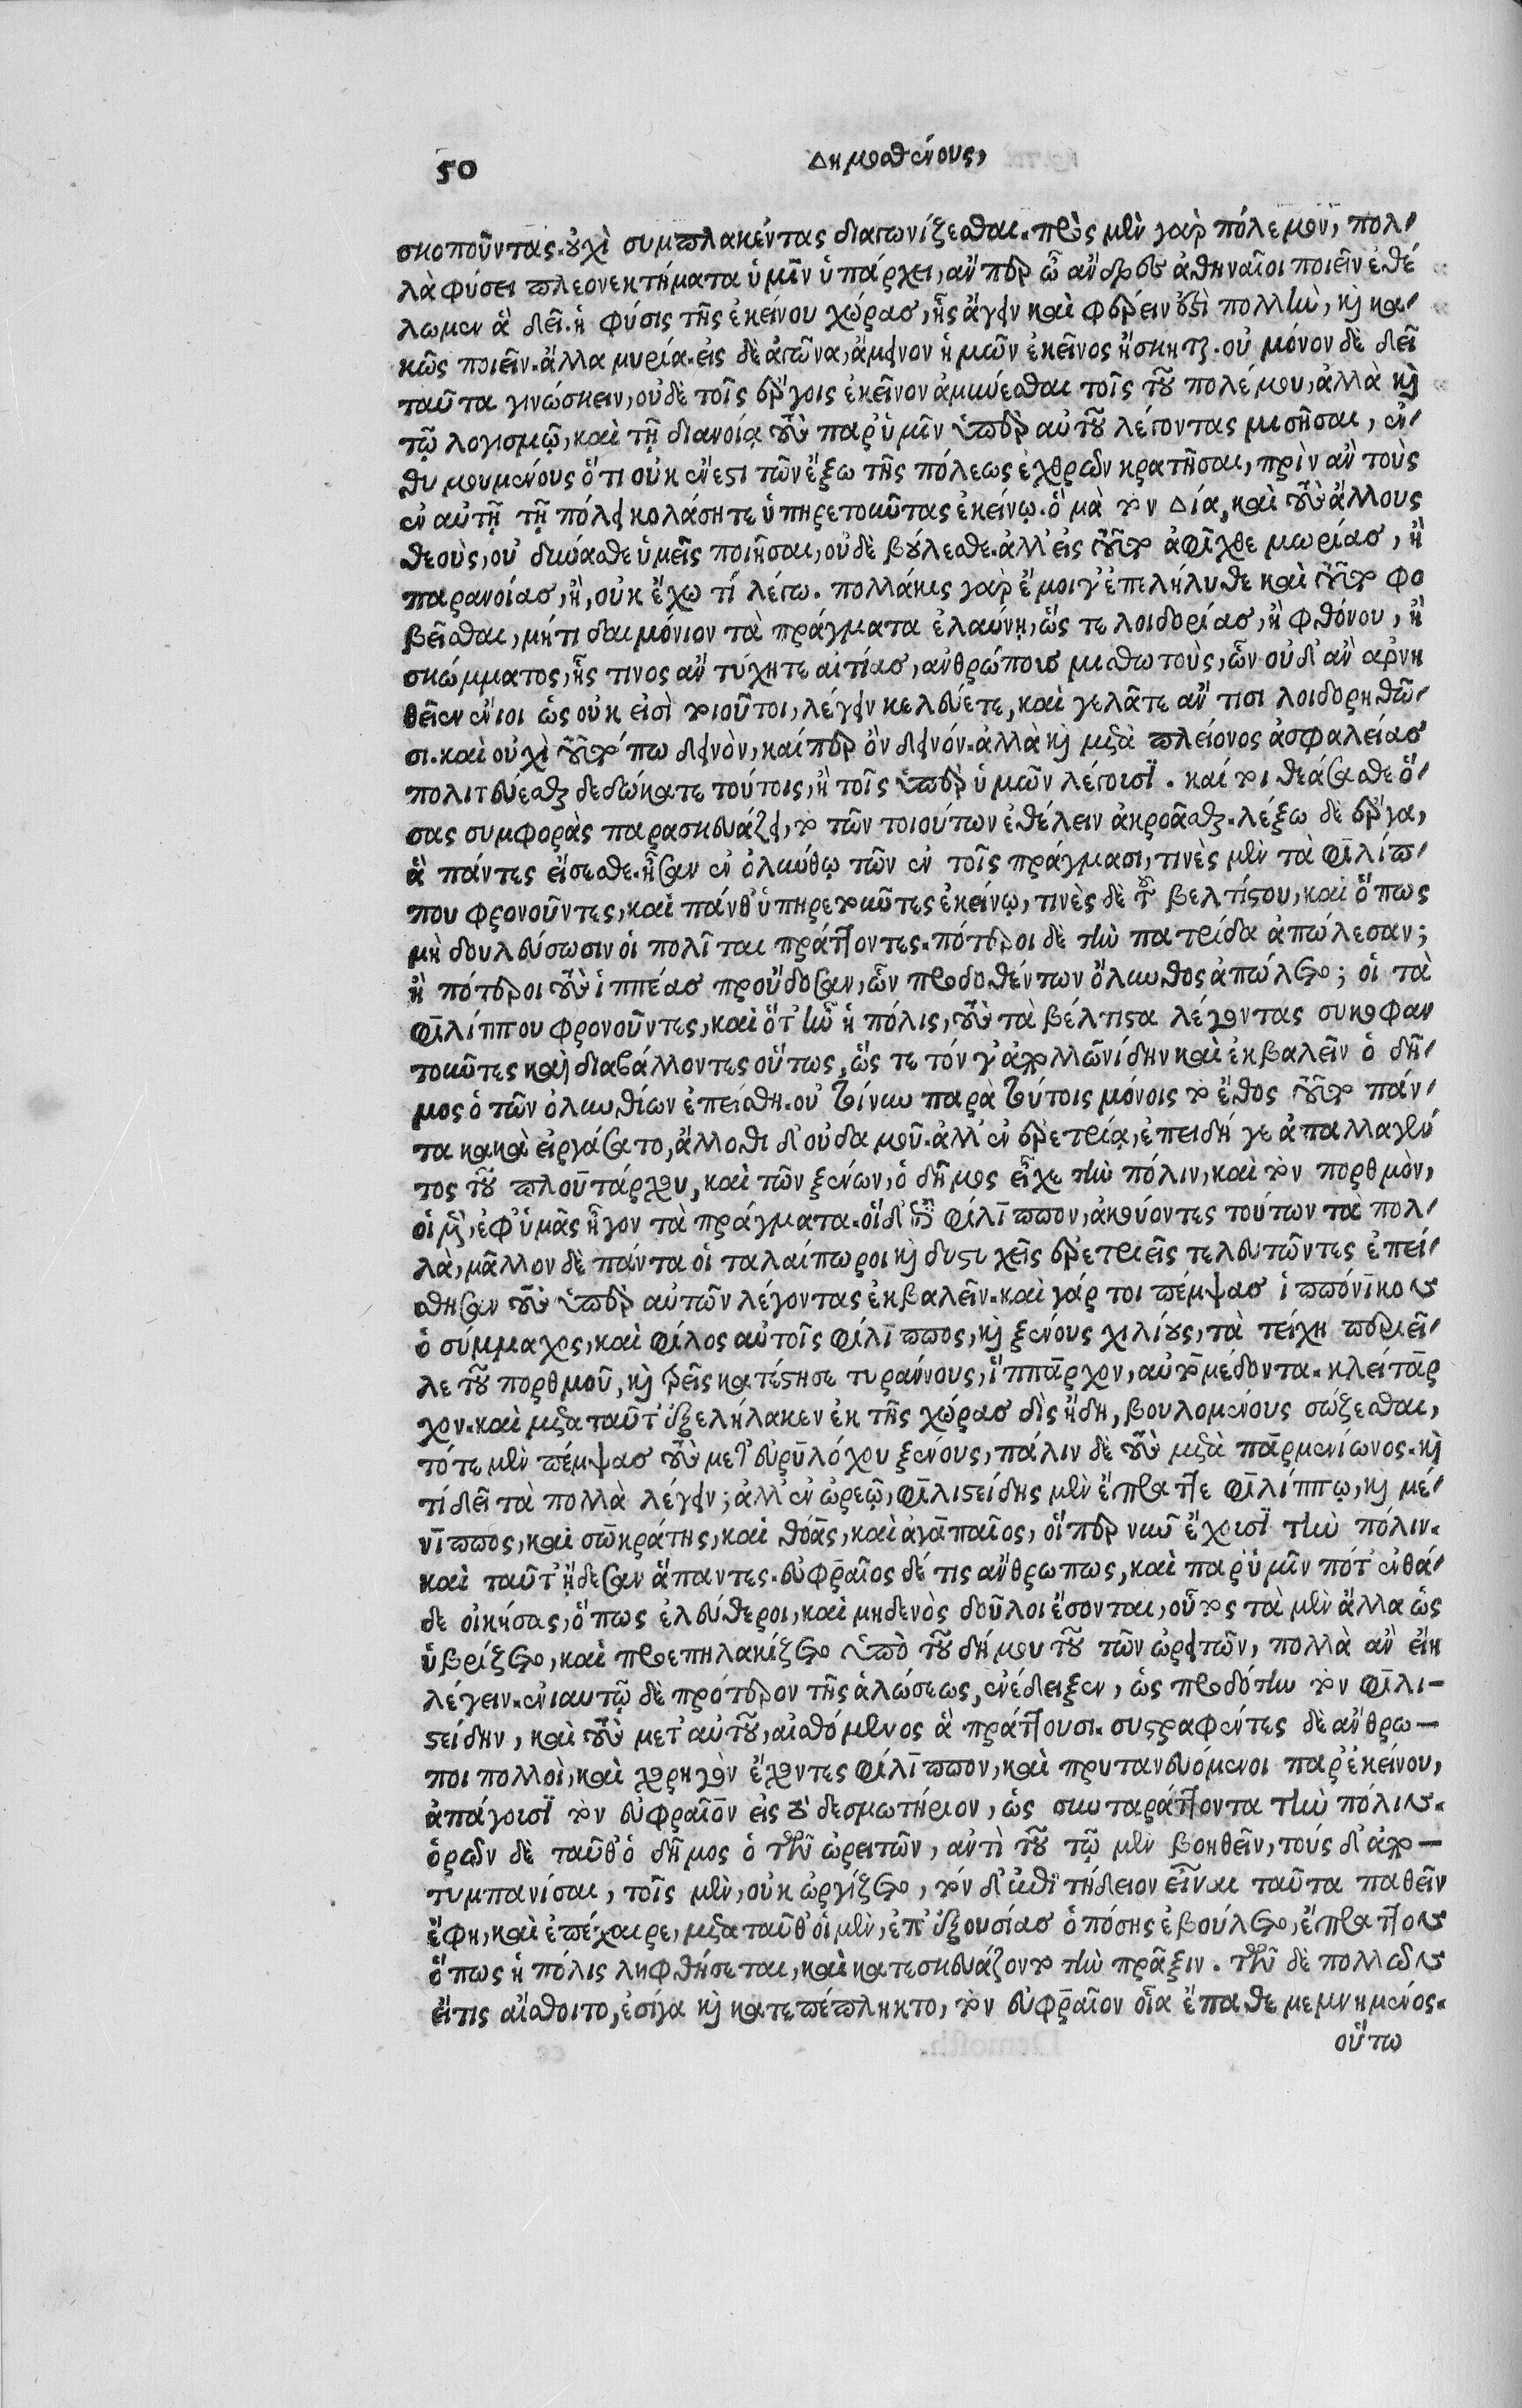 50
Δημοσθένους,
σκοποῦντας. οὐχὶ συμπλακέντας διαγωνίζεσθαι. πρὸς μὲν γὰρ πόλεμον, πολ-
λὰ φύσει πλεονεκτήματα ὑμῖν ὑπάρχει, ἄν περ ὦ ἄνδρες ἀθηναῖοι ποιεῖν ἐθέ
λωμεν ἃ δεῖ. ἡ φύσις τῆς ἐκείνου χώρας, ἧς ἄγειν καὶ φέρειν ἐστὶ πολλὴν, καὶ κα-
κῶς ποιεῖν. ἄλλα μυρία. εἰς δὲ ἀγῶνα, ἄμεινον ἡμῶν ἐκεῖνος ἤσκηται. οὐ μόνον δὲ δεῖ
ταῦτα γινώσκειν, οὐδὲ τοῖς ἔργοις ἐκεῖνον ἀμύνεσθαι τοῖς τοῦ πολέμου, ἀλλὰ καὶ
τῷ λογισμῷ, καὶ τῇ διανοίᾳ τοὺς παρ' ὑμῖν ὑπὲρ αὐτοῦ λέγοντας μισῆσαι, ἐν-
θυμουμένους ὅτι οὐκ ἔνεστι τῶν ἔξω τῆς πόλεως ἐχθρῶν κρατῆσαι, πρὶν ἂν τοὺς
ἐν αὐτῇ τῇ πόλει κολάσητε ὑπηρετοῦντας ἐκείνῳ. ὃ μὰ τὸν Δία, καὶ τοὺς ἄλλους
θεοὺς, οὐ δύνασθε ὑμεῖς ποιῆσαι, οὐδὲ βούλεσθε. ἀλλ' εἰς τοῦτο ἀφῖχθε μωρίας, ἢ
παρανοίας, ἢ, οὐκ ἔχω τί λέγω. πολλάκις γὰρ ἔμοιγ' ἐπελήλυθε καὶ τοῦτο φο
βεῖσθαι, μήτι δαιμόνιον τὰ πράγματα ἐλαύνῃ, ὥς τε λοιδορίας, ἢ φθόνου, ἢ
σκώμματος, ἧς τινος ἂν τύχητε αἰτίας, ἀνθρώπους μισθωτοὺς, ὧν οὐδ' ἂν ἀρνη
θεῖεν ἔνιοι ὡς οὐκ εἰσὶ τοιοῦτοι, λέγειν κελεύετε, καὶ γελᾶτε ἄν τισι λοιδορηθῶ-
σι. καὶ οὐχὶ τοῦτό πω δεινὸν, καίπερ ὂν δεινόν. ἀλλὰ καὶ μετὰ πλείονος ἀσφαλείας
πολιτεύεσθαι δεδώκατε τούτοις, ἢ τοῖς ὑπὲρ ὑμῶν λέγουσι. καί τοι θεάσασθε ὅ-
σας συμφορὰς παρασκευάζει, τὸ τῶν τοιούτων ἐθέλειν ἀκροᾶσθαι. λέξω δὲ ἔργα,
ἃ πάντες εἴσεσθε. ἦσαν ἐν ὀλύνθῳ τῶν ἐν τοῖς πράγμασι, τινὲς μὲν τὰ φιλίπ-
που φρονοῦντες, καὶ πάνθ' ὑπηρετοῦντες ἐκείνῳ, τινὲς δὲ τοῦ βελτίστου, καὶ ὅπως
μὴ δουλεύσωσιν οἱ πολῖται πράττοντες. πότεροι δὲ τὴν πατρίδα ἀπώλεσαν;
ἢ πότεροι τοὺς ἱππέας προὔδοσαν, ὧν προδοθέντων ὄλυνθος ἀπώλετο; οἱ τὰ
φιλίππου φρονοῦντες, καὶ ὅτ' ἦν ἡ πόλις, τοὺς τὰ βέλτιστα λέγοντας συκοφαν
τοῦντες καὶ διαβάλλοντες οὕτως, ὥς τε τόν γ' ἀπολλωνίδην καὶ ἐκβαλεῖν ὁ δῆ-
μος ὁ τῶν ὀλυνθίων ἐπείσθη. οὐ τοίνυν παρὰ τούτοις μόνοις τὸ ἔθος τοῦτο πάν-
τα κακὰ εἰργάσατο, ἄλλοθι δ' οὐδαμοῦ. ἀλλ' ἐν ἐρετρίᾳ, ἐπειδή γε ἀπαλλαγέν
τος τοῦ πλουτάρχου, καὶ τῶν ξένων, ὁ δῆμος εἶχε τὴν πόλιν, καὶ τὸν πορθμὸν,
οἱ μὲν, ἐφ' ὑμᾶς ἦγον τὰ πράγματα. οἱ δ' ἐπὶ φίλιππον, ἀκούοντες τούτων τὰ πολ-
λὰ, μᾶλλον δὲ πάντα οἱ ταλαίπωροι καὶ δυστυχεῖς ἐρετριεῖς τελευτῶντες ἐπεί-
σθησαν τοὺς ὑπὲρ αὐτῶν λέγοντας ἐκβαλεῖν. καὶ γάρ τοι πέμψας ἱππόνικον
ὁ σύμμαχος, καὶ φίλος αὐτοῖς φίλιππος, καὶ ξένους χιλίους, τὰ τείχη περιεῖ-
λε τοῦ πορθμοῦ, καὶ τρεῖς κατέστησε τυράννους, ἵππαρχον, αὐτομέδοντα. κλείταρ
χον. καὶ μετὰ ταῦτ' ἐξελήλακεν ἐκ τῆς χώρας δὶς ἤδη, βουλομένους σώζεσθαι,
τότε μὲν πέμψας τοὺς μετ' εὐρυλόχου ξένους, πάλιν δὲ τοὺς μετὰ παρμενίωνος. καὶ
τί δεῖ τὰ πολλὰ λέγειν; ἀλλ' ἐν ὠρεῷ, φιλιστείδης μὲν ἔπραττε φιλίππῳ, καὶ μέ-
νιππος, καὶ σωκράτης, καὶ θόας, καὶ ἀγαπαῖος, οἵπερ νῦν ἔχουσι τὴν πόλιν.
καὶ ταῦτ' ᾔδεσαν ἅπαντες. εὐφραῖος δέ τις ἄνθρωπως, καὶ παρ' ὑμῖν πότ' ἐνθά-
δε οἰκήσας, ὅπως ἐλεύθεροι, καὶ μηδενὸς δοῦλοι ἔσονται, οὗτος τὰ μὲν ἄλλα ὡς
ὑβρίζετο, καὶ προεπηλακίζετο ὑπὸ τοῦ δήμου τοῦ τῶν ὠρειτῶν, πολλὰ ἂν εἴη
λέγειν. ἐνιαυτῷ δὲ πρότερον τῆς ἁλώσεως, ἐνέδειξεν, ὡς προδότην τὸν φιλι-
στείδην, καὶ τοὺς μετ' αὐτοῦ, αἰσθόμενος ἃ πράττουσι. συστραφέντες δὲ ἄνθρω-
ποι πολλοὶ, καὶ χορηγὸν ἔχοντες φίλιππον, καὶ πρυτανευόμενοι παρ' ἐκείνου,
ἀπάγουσι τὸν εὐφραῖον εἰς τὸ δεσμωτήριον, ὡς συνταράττοντα τὴν πόλιν.
ὁρῶν δὲ ταῦθ' ὁ δῆμος ὁ τῶν ὠρειτῶν, ἀντὶ τοῦ τῷ μὲν βοηθεῖν, τοὺς δ' ἀπο-
τυμπανίσαι, τοῖς μὲν, οὐκ ὠργίζετο, τὸν δ' ἐπιτήδειον εἶναι ταῦτα παθεῖν
ἔφη, καὶ ἐπέχαιρε, μετὰ ταῦθ' οἱ μὲν, ἐπ' ἐξουσίας ὁπόσης ἐβούλετο, ἔπραττον
ὅπως ἡ πόλις ληφθήσεται, καὶ κατεσκευάζοντο τὴν πρᾶξιν. τῶν δὲ πολλῶν
εἴ τις αἴσθοιτο, ἐσίγα καὶ κατεπέπληκτο, τὸν εὐφραῖον οἷα ἔπαθε μεμνημένος.
οὕτω